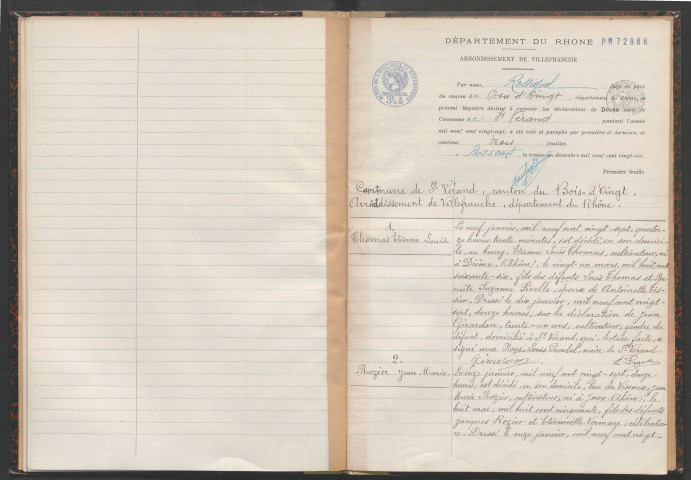 DÉPARTEMENT DU RHONE PM 72986
ARRONDISSEMENT DE VILLEFRANCHE
Par nous, juge de paix
du canton du Bois d'Oingt, département du Rhône, le
présent Registre destiné à recevoir les déclarations de Décès dans la
Commune de St Vérand pendant l'année
mil neuf cent vingt-sept, a été coté et paraphé par première et dernière, et
contient trois feuilles
, le trente décembre mil neuf cent vingt-six.
Première feuille
Commune de St Vérand, canton du Bois-d'Oingt,
Arrondissement de Villefranche, département du Rhône.
1.
Thomas Etienne Louis.
Le neuf janvier, mil neuf cent vingt-sept, quator-
ze heures, trente minutes, est décédé, en son domici-
le, au bourg, Etienne Louis Thomas, cultivateur, né
à Dième, (Rhône), le vingt-un mars, mil huit cent
soixante-six, fils des défunts Louis Thomas et Be-
noîte Suzanne, époux de Antoinette
. Dressé le dix janvier, mil neuf cent vingt-
sept, douze heures, sur la déclaration de Jean
Girardon, trente-un ans, cultivateur, gendre du
défunt, domicilié à St Vérand, qui, lecture faite, a
signé avec Nous, Louis Pradel, maire de St Vérand.
2.
Rozier Jean Marie.
Le onze janvier, mil neuf cent vingt-sept, douze
heures, est décédé, en son domicile, Jean
Marie Rozier, cultivateur, né à Joux, (Rhône), le
huit mai, mil huit cent cinquante, fils des défunts
Jacques Rozier et Etiennette, célibatai-
re. Dressé le onze janvier, mil neuf cent vingt-